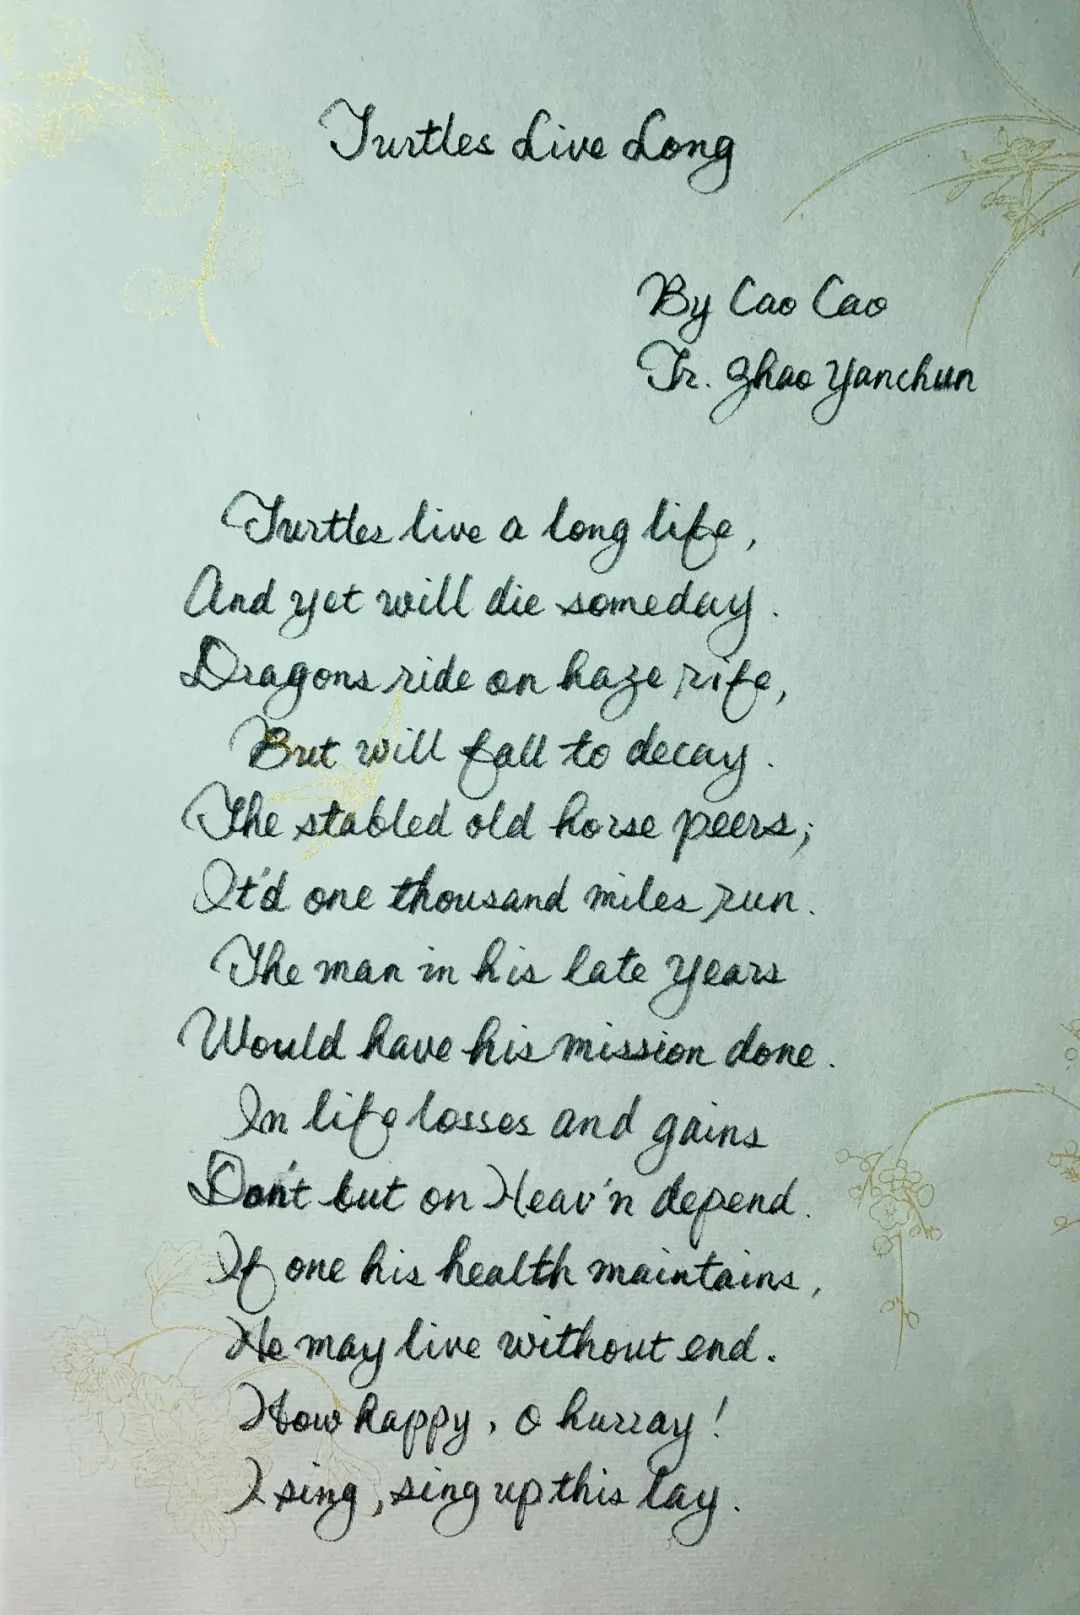 Turtles Live Long
By Cao Cao
Tr. Zhao Yanchun
Turtles live a long life,
And yet will die someday.
Dragons ride on haze rife,
But will fall to decay.
The stabled old horse peers;
It'd one thousand miles run.
The man in his late years
Would have his mission done.
In life losses and gains
Don't but on Heav'n depend.
If one his health maintains,
He may live without end.
How happy, o hurray!
I sing, sing up this lay.